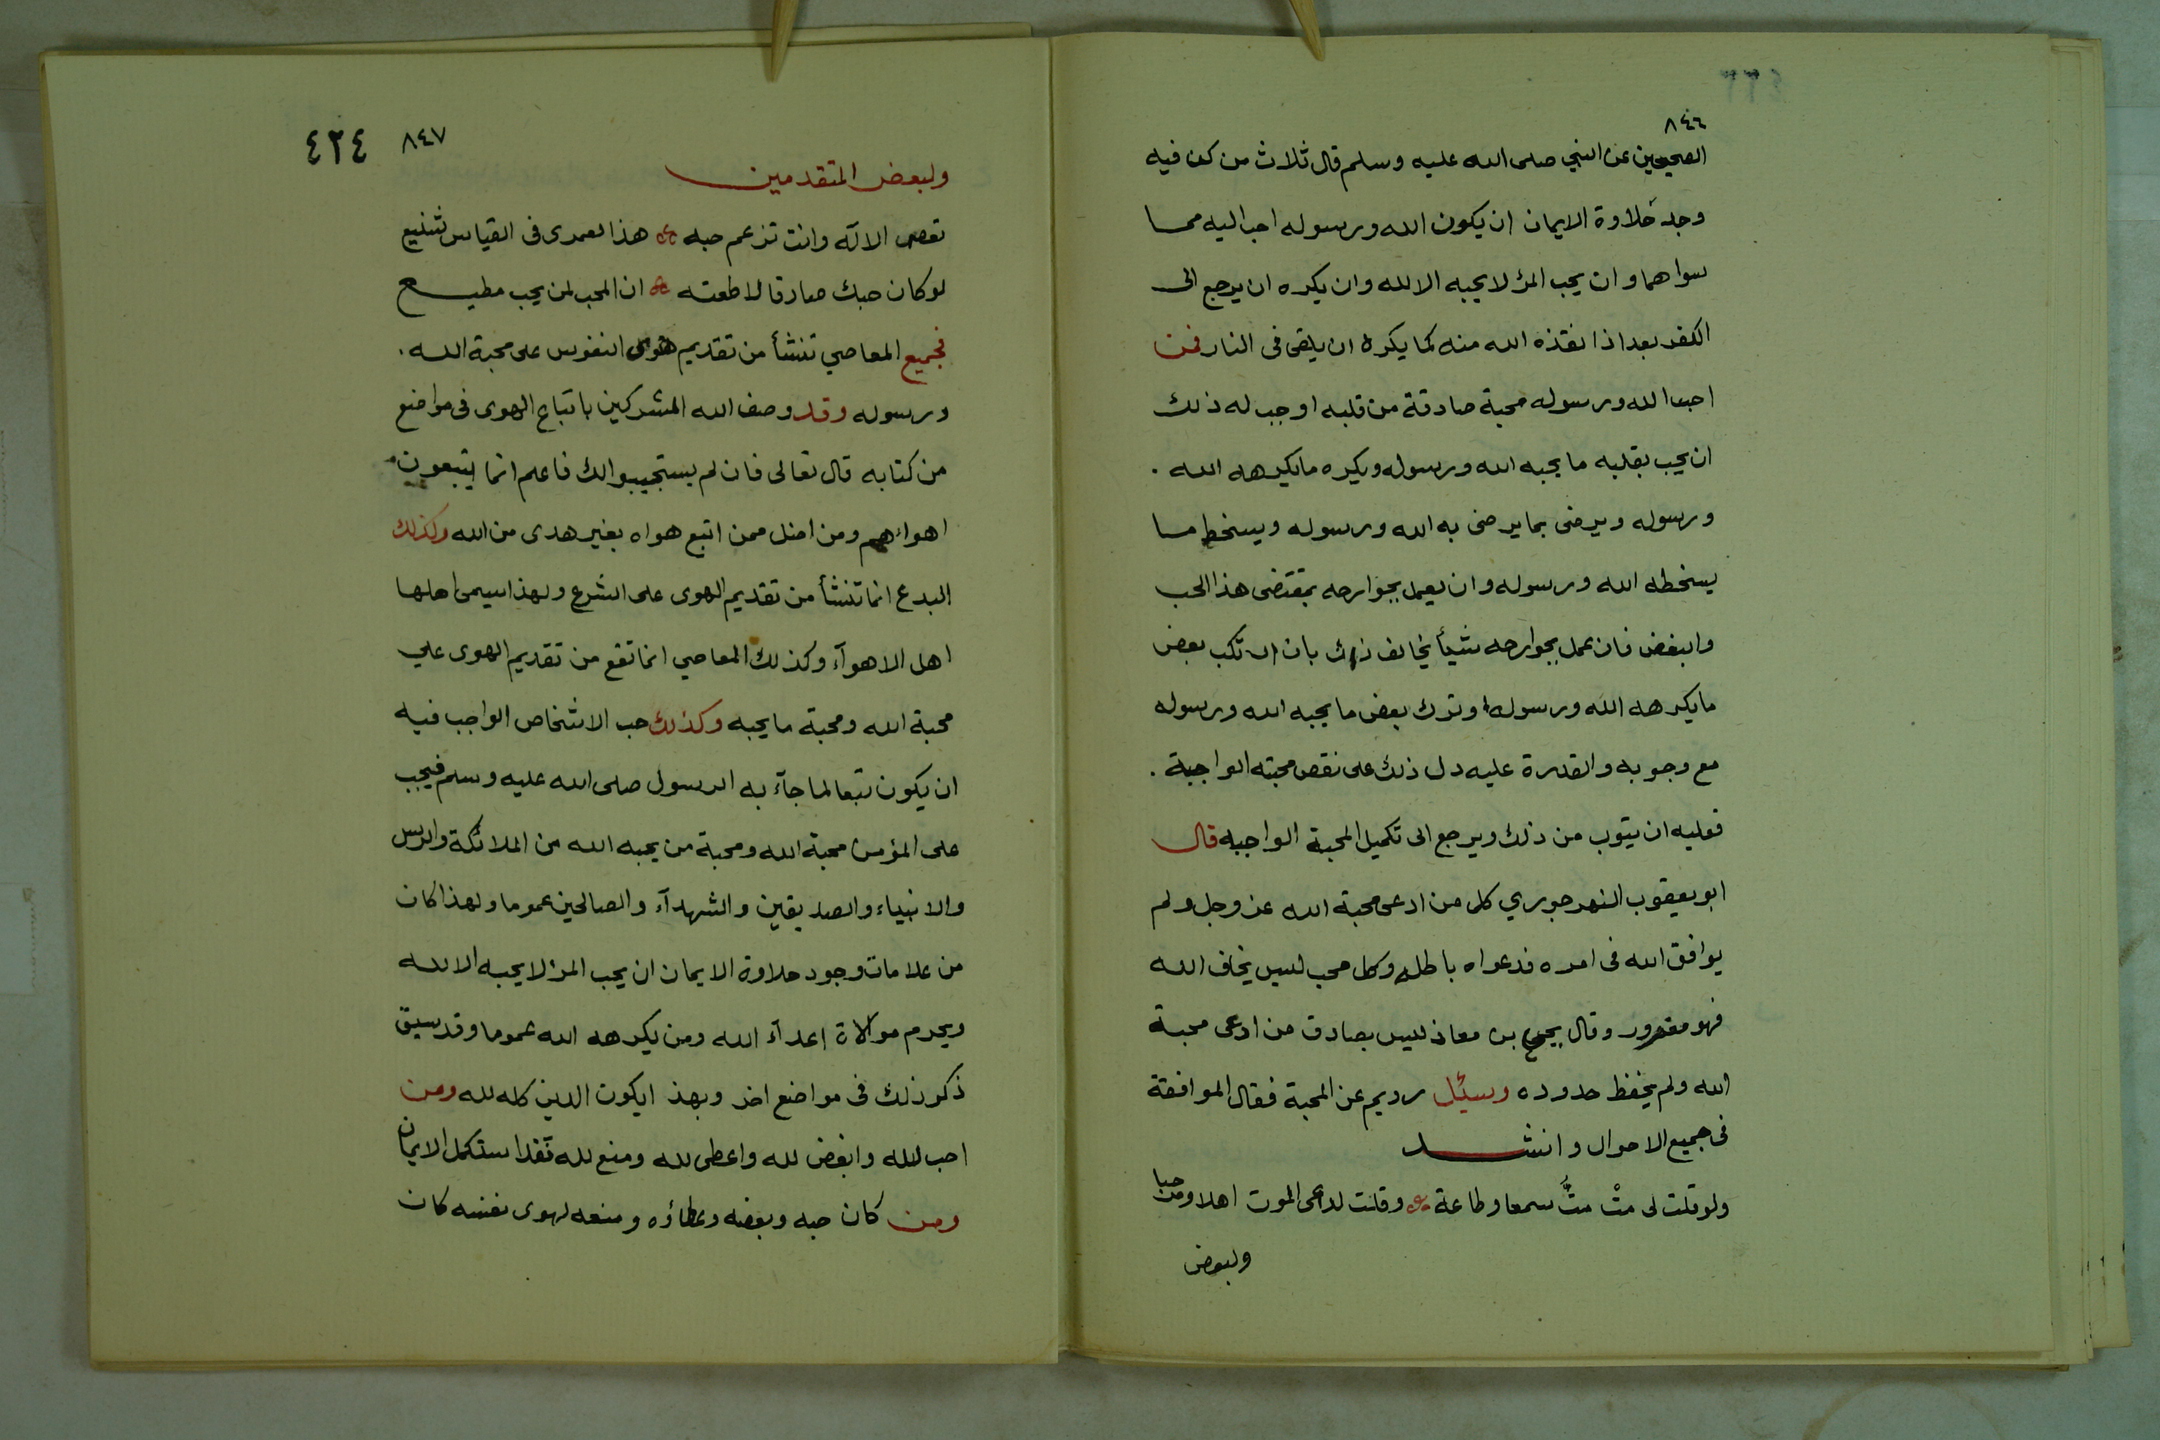 ٨٤٦
الصحيحين عن النبي صلى الله عليه وسلم قال ثلاث من كن فيه
وجد حَلاوة الايمان ان يكون الله ورسوله احب اليه مما
سواهما وان يحب المرٔ لا يحبه الا لله وان يكره ان يرجع الى
الكفر بعد اذ انقذه الله منه كما يكره ان يلقى فى النار فمن
احب الله ورسوله محبة صادقة من قلبه اوجب له ذلك
ان يحب بقلبه ما يحبه الله ورسوله ويكره ما يكرهه الله .
ورسوله ويرضى بما يرضى به الله ورسوله ويسخط ما
يسخطه الله ورسوله وان يعمل بجوارحه بمقتضى هذا الحب
والبغض فان عمل بجوارحه شيأ يخالف ذلك بان ارتكب بعض
ما يكرهه الله ورسوله او ترك بعض ما يحبه الله ورسوله
مع وجوبه والقدرة عليه دل ذلك على نقص محبته الواجبة .
فعليه ان يتوب من ذلك ويرجع الى تكميل المحبة الواجبه قال
ابو يعقوب النهرجوري كل من ادعى محبة الله عز وجل ولم
يوافق الله فى امره فدعواه باطله وكل محب ليس يخاف الله
فهو مغرور وقال يحيى بن معاذ ليس بصادق من ادعى محبة
الله ولم يحفظ حدوده وسئل رويم عن المحبة فقال الموافقة
فى جميع الاحوال وانشد
ولو قلت لى متْ متُّ سمعا وطاعة وقلت لداعى الموت اهلا ومرحبا
ولبعض
٨٤٧ ٤٢٤
ولبعض المتقدمين
تعصى الاله وانت تزعم حبه هذا لعمرى فى القياس شنيع
لو كان حبك صادقا لاطعته ان المحب لمن يحب مطيع
فجميع المعاصي تنشأ من تقديم هوى النفوس على محبة الله .
ورسوله وقد وصف الله المشركين باتباع الهوى فى مواضع
من كتابه قال تعالى فان لم يستجيبوا لك فاعلم انما يتبعون
اهواءهم ومن اضل ممن اتبع هواه بغير هدى من الله وكذلك
البدع انما تنشأ من تقديم الهوى على الشرع ولهذا سيمى اهلها
اهل الاهوآء وكذلك المعاصي انما تقع من تقديم الهوى علي
محبة الله ومحبة ما يحبه وكذلك حب الاشخاص الواجب فيه
ان يكون تبعا لما جآء به الرسول صلى الله عليه وسلم فيجب
على المؤمن محبة الله ومحبة من يحبه الله من الملائكة والرسل
والانبياء والصديقين والشهدآء والصالحين عموما ولهذا كان
من علامات وجود حلاوة الايمان ان يحب المرٔ لا يحبه الا لله
ويحرم موالاة اعدآء الله ومن يكرهه الله عموما وقد سبق
ذكر ذلك فى مواضع اخر وبهذا يكون الدين كله لله ومن
احب لله وابغض لله واعطى لله ومنع لله فقد استكمل الايمان
ومن كان حبه وبغضه وعطاؤه ومنعه لهوى نفسه كان